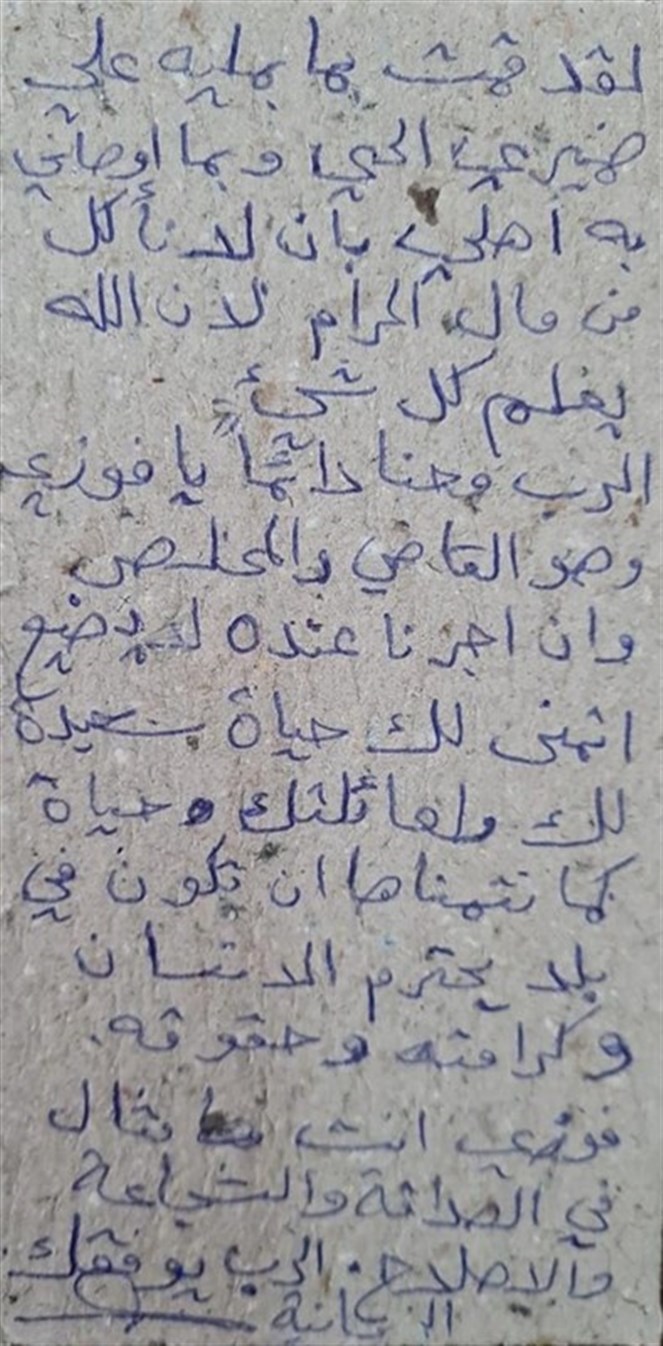 لقد قمت بما يمليه علي
ضميري الحي وبما اوصاني
به اهلي بان لا نأكل
من مال الحرام لان الله
يعلم كل شيءٍ
الرب معنا دائماً يا فوزي
وهو القاضي والمخلص
وان اجرنا عنده لا يضيع
اتمنى لك حياة سعيدة
لك ولعائلتك وحياة
كما نتمناها ان تكون في
بلد يحترم الانسان
وكرامته وحقوقه.
فوزي انت مثال
في الصداقة والشجاعة
والاصلاح. الرب يوفقك